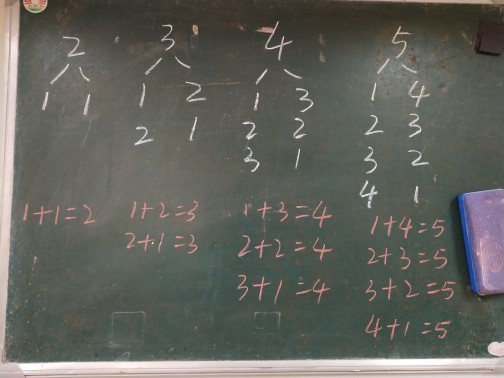 2 3 4 5
1 1 1 2 1 3 1 4
2 1 2 2 2 3
3 1 3 2
4 1
1+1=2 1+2=3 1+3=4 1+4=5
2+1=3 2+2=4 2+3=5
3+1=4 3+2=5
4+1=5